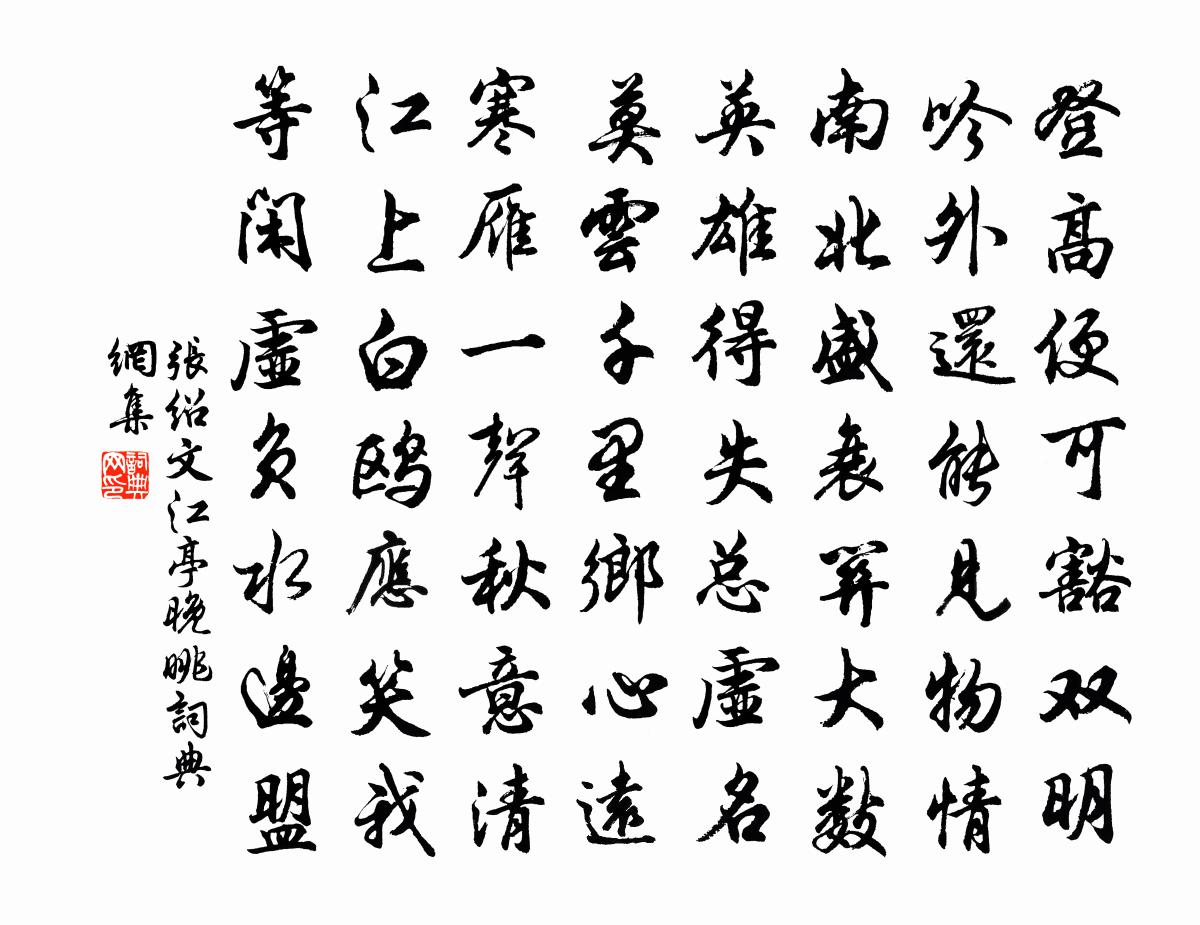 登高便可豁双明
吟外還能見物情
南北盛衰関大数
英雄得失总虛名
莫雲千里鄉心遠
寒雁一聲秋意清
江上白鷗應笑我
等闲虛负水邊盟
張绍文江亭晚眺詞典
網集
詞典
网印